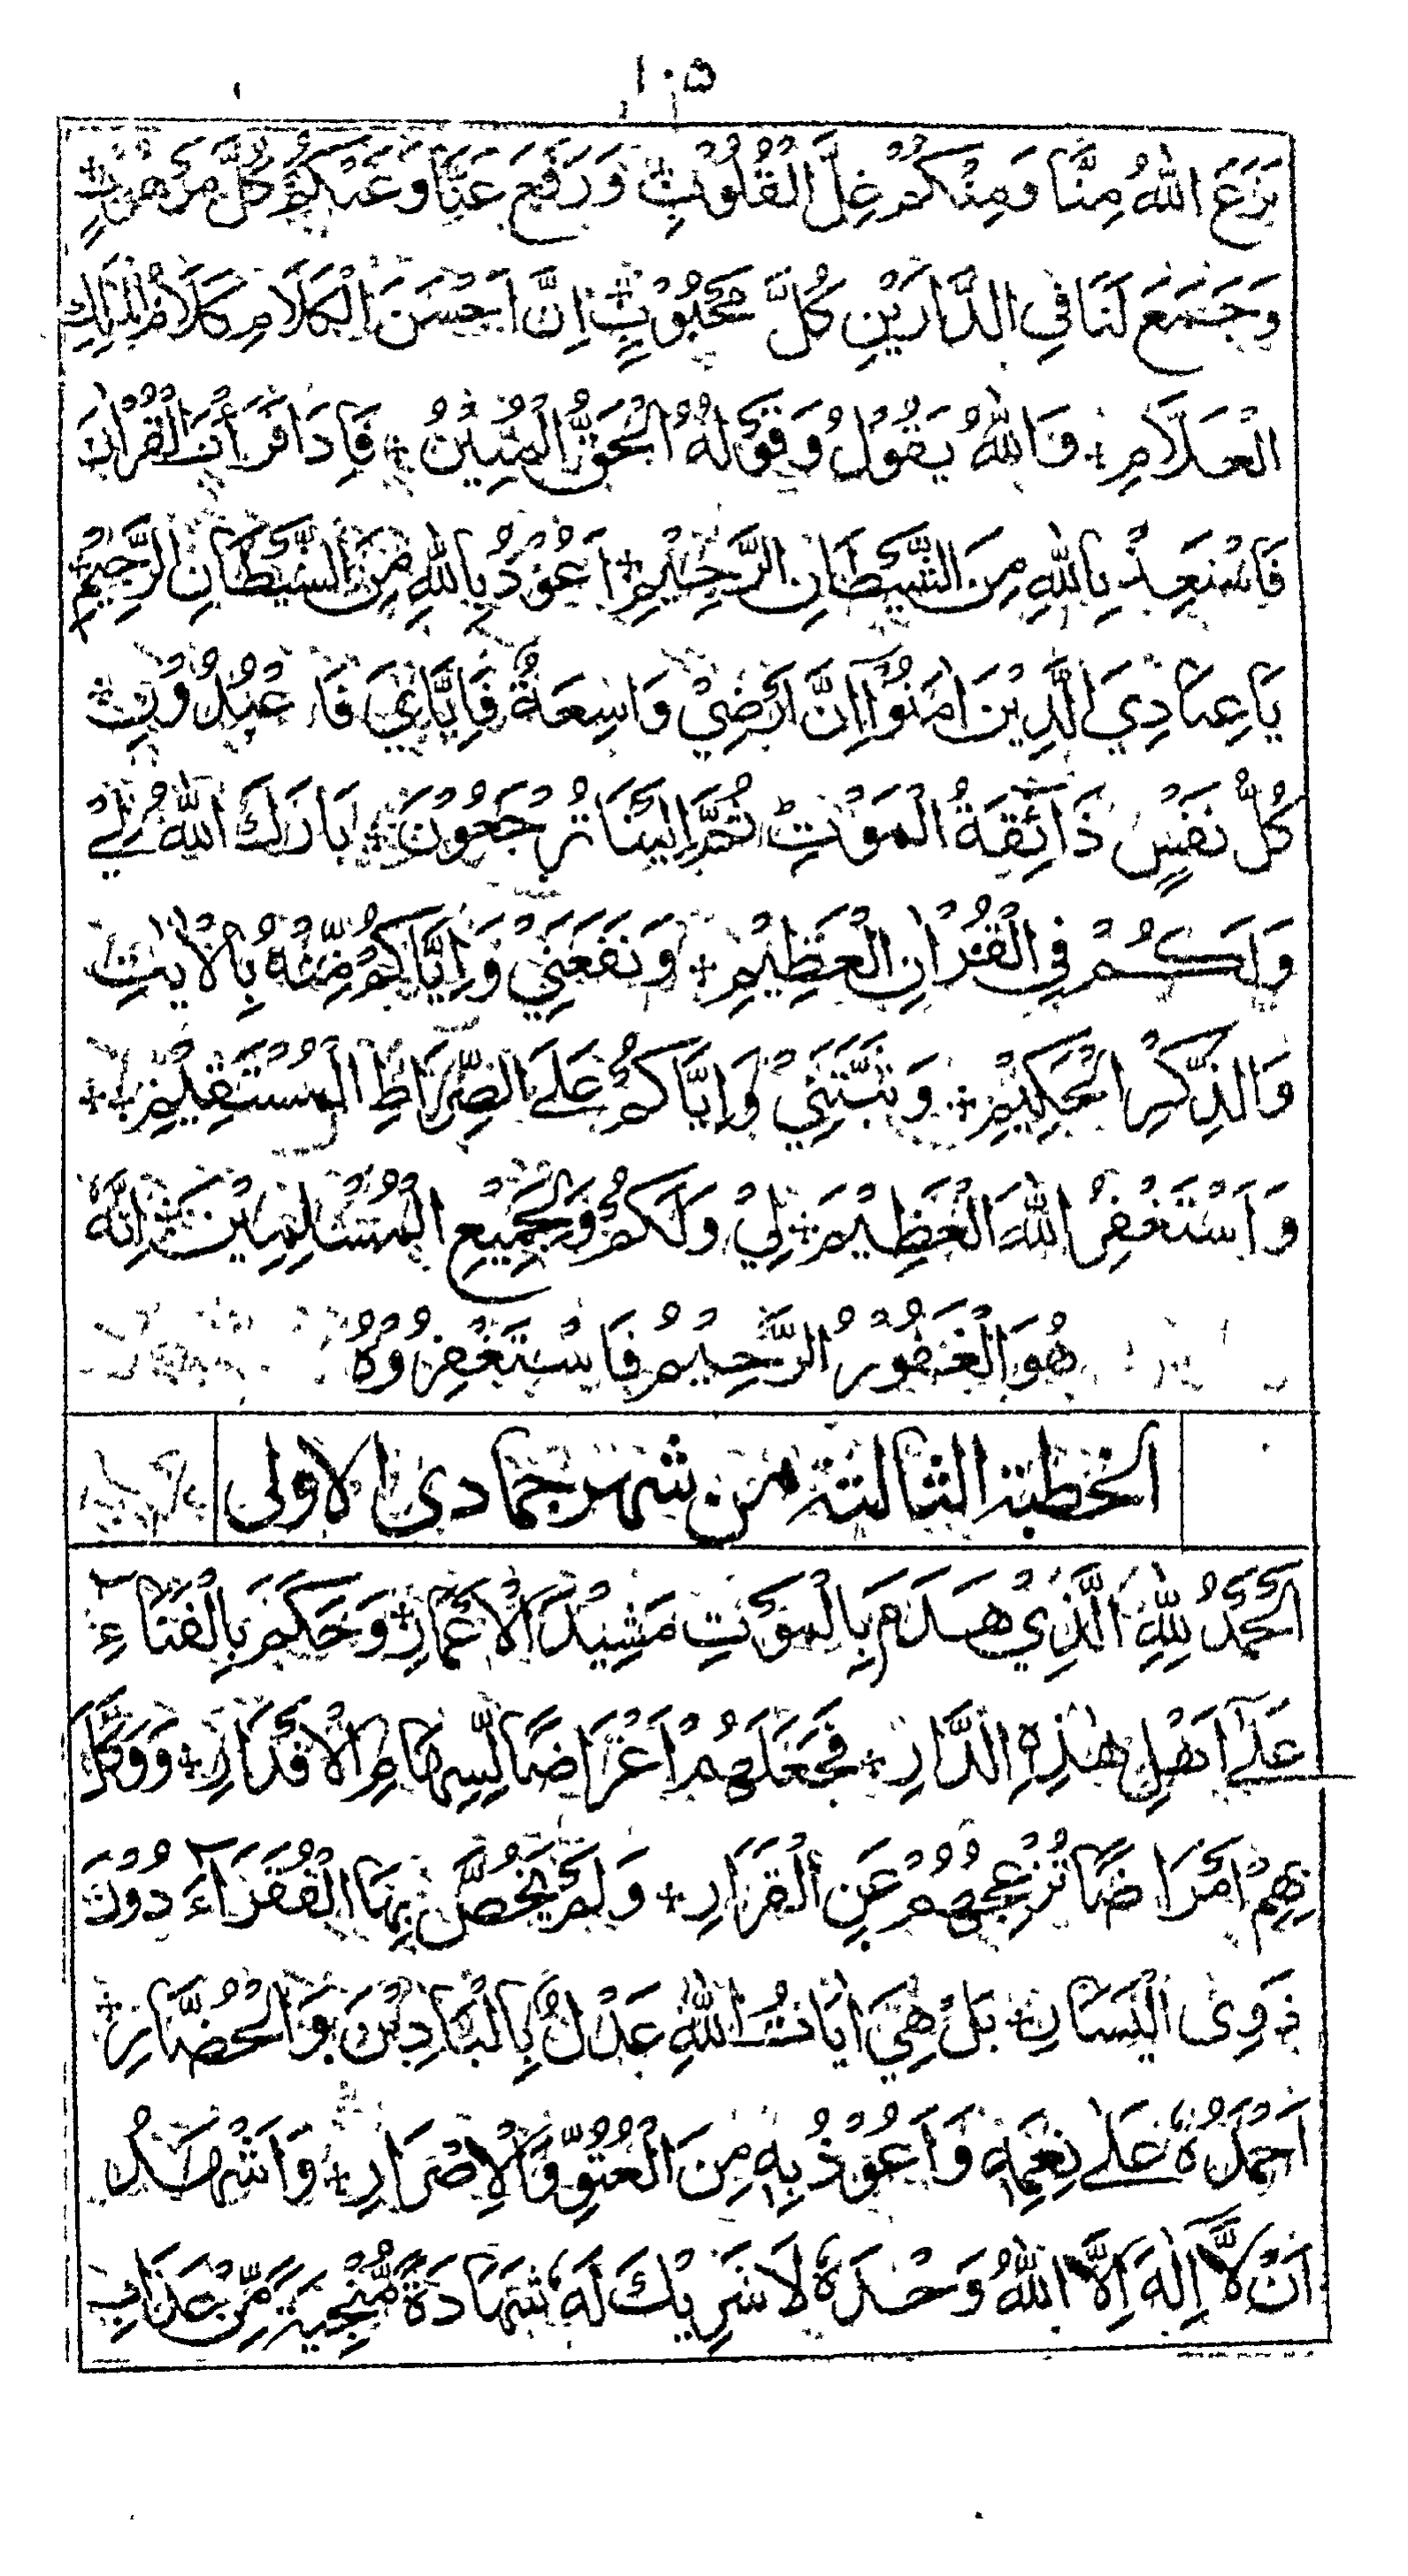 ١٠٥
نَزَعَ اللهُ مِنَّا وَمِنْكُمْ غِلَّ الْقُلُوْبِ وَرَفَعَ عَنَّا وَعَنْكُمْ كُلَّ مَرْهُوْبٍ +
وَجَمَعَ لَنَا فِي الدَّارَيْنِ كُلَّ مَحْبُوْبٍ + اِنَّ اَحْسَنَ الْكَلَامِ كَلَامُ الْمَلِكِ
الْعَلَّامِ + وَاللهُ يَقُوْلُ وَقَوْلُهُ الْحَقُّ الْمُبِيْنُ + فَاِذَا قَرَأْتَ الْقُرْاٰنَ
فَاسْتَعِذْ بِاللهِ مِنَ الشَّيْطَانِ الرَّجِيْمِ + اَعُوْذُ بِاللهِ مِنَ الشَّيْطَانِ الرَّجِيْمِ +
يَا عِبَادِيَ الَّذِيْنَ اٰمَنُوْا اِنَّ اَرْضِيْ وَاسِعَةٌ فَاِيَّايَ فَاعْبُدُوْنِ +
كُلُّ نَفْسٍ ذَائِقَةُ الْمَوْتِ ثُمَّ اِلَيْنَا تُرْجَعُوْنَ + بَارَكَ اللهُ لِيْ
وَلَكُمْ فِي الْقُرْاٰنِ الْعَظِيْمِ + وَنَفَعَنِيْ وَاِيَّاكُمْ مِّنْهُ بِالْاٰيٰتِ
وَالذِّكْرِ الْحَكِيْمِ + وَثَبَّتَنِيْ وَاِيَّاكُمْ عَلَى الصِّرَاطِ الْمُسْتَقِيْمِ +
وَاَسْتَغْفِرُ اللهَ الْعَظِيْمَ + لِيْ وَلَكُمْ وَلِجَمِيْعِ الْمُسْلِمِيْنَ + اِنَّهُ
هُوَ الْغَفُوْرُ الرَّحِيْمُ فَاسْتَغْفِرُوْهُ
الخطبة الثالثة من شهر جمادى الاولى
اَلْحَمْدُ لِلّٰهِ الَّذِيْ هَدَمَ بِالْمَوْتِ مَشِيْدَ الْاَعْمَارِ + وَحَكَمَ بِالْفَنَآءِ
عَلٰى اَهْلِ هٰذِهِ الدَّارِ + فَجَعَلَهُمْ اَغْرَاضًا لِّسِهَامِ الْاَقْدَارِ + وَوَكَّلَ
بِهِمْ اَمْرَاضًا تُزْعِجُهُمْ عَنِ الْقَرَارِ + وَلَمْ يَخُصَّ بِهَا الْفُقَرَآءَ دُوْنَ
ذَوِى الْيَسَارِ + بَلْ هِيَ اٰيَاتُ اللهِ عَدْلٌ بِالْبَادِيْنَ وَالْحُضَّارِ +
اَحْمَدُهٗ عَلٰى نِعَمِهٖ وَاَعُوْذُ بِهٖ مِنَ الْعُتُوِّ وَالْاِصْرَارِ + وَاَشْهَدُ
اَنْ لَّا اِلٰهَ اِلَّا اللهُ وَحْدَهٗ لَا شَرِيْكَ لَهٗ شَهَادَةً مُّنْجِيَةً مِّنْ عَذَابِ